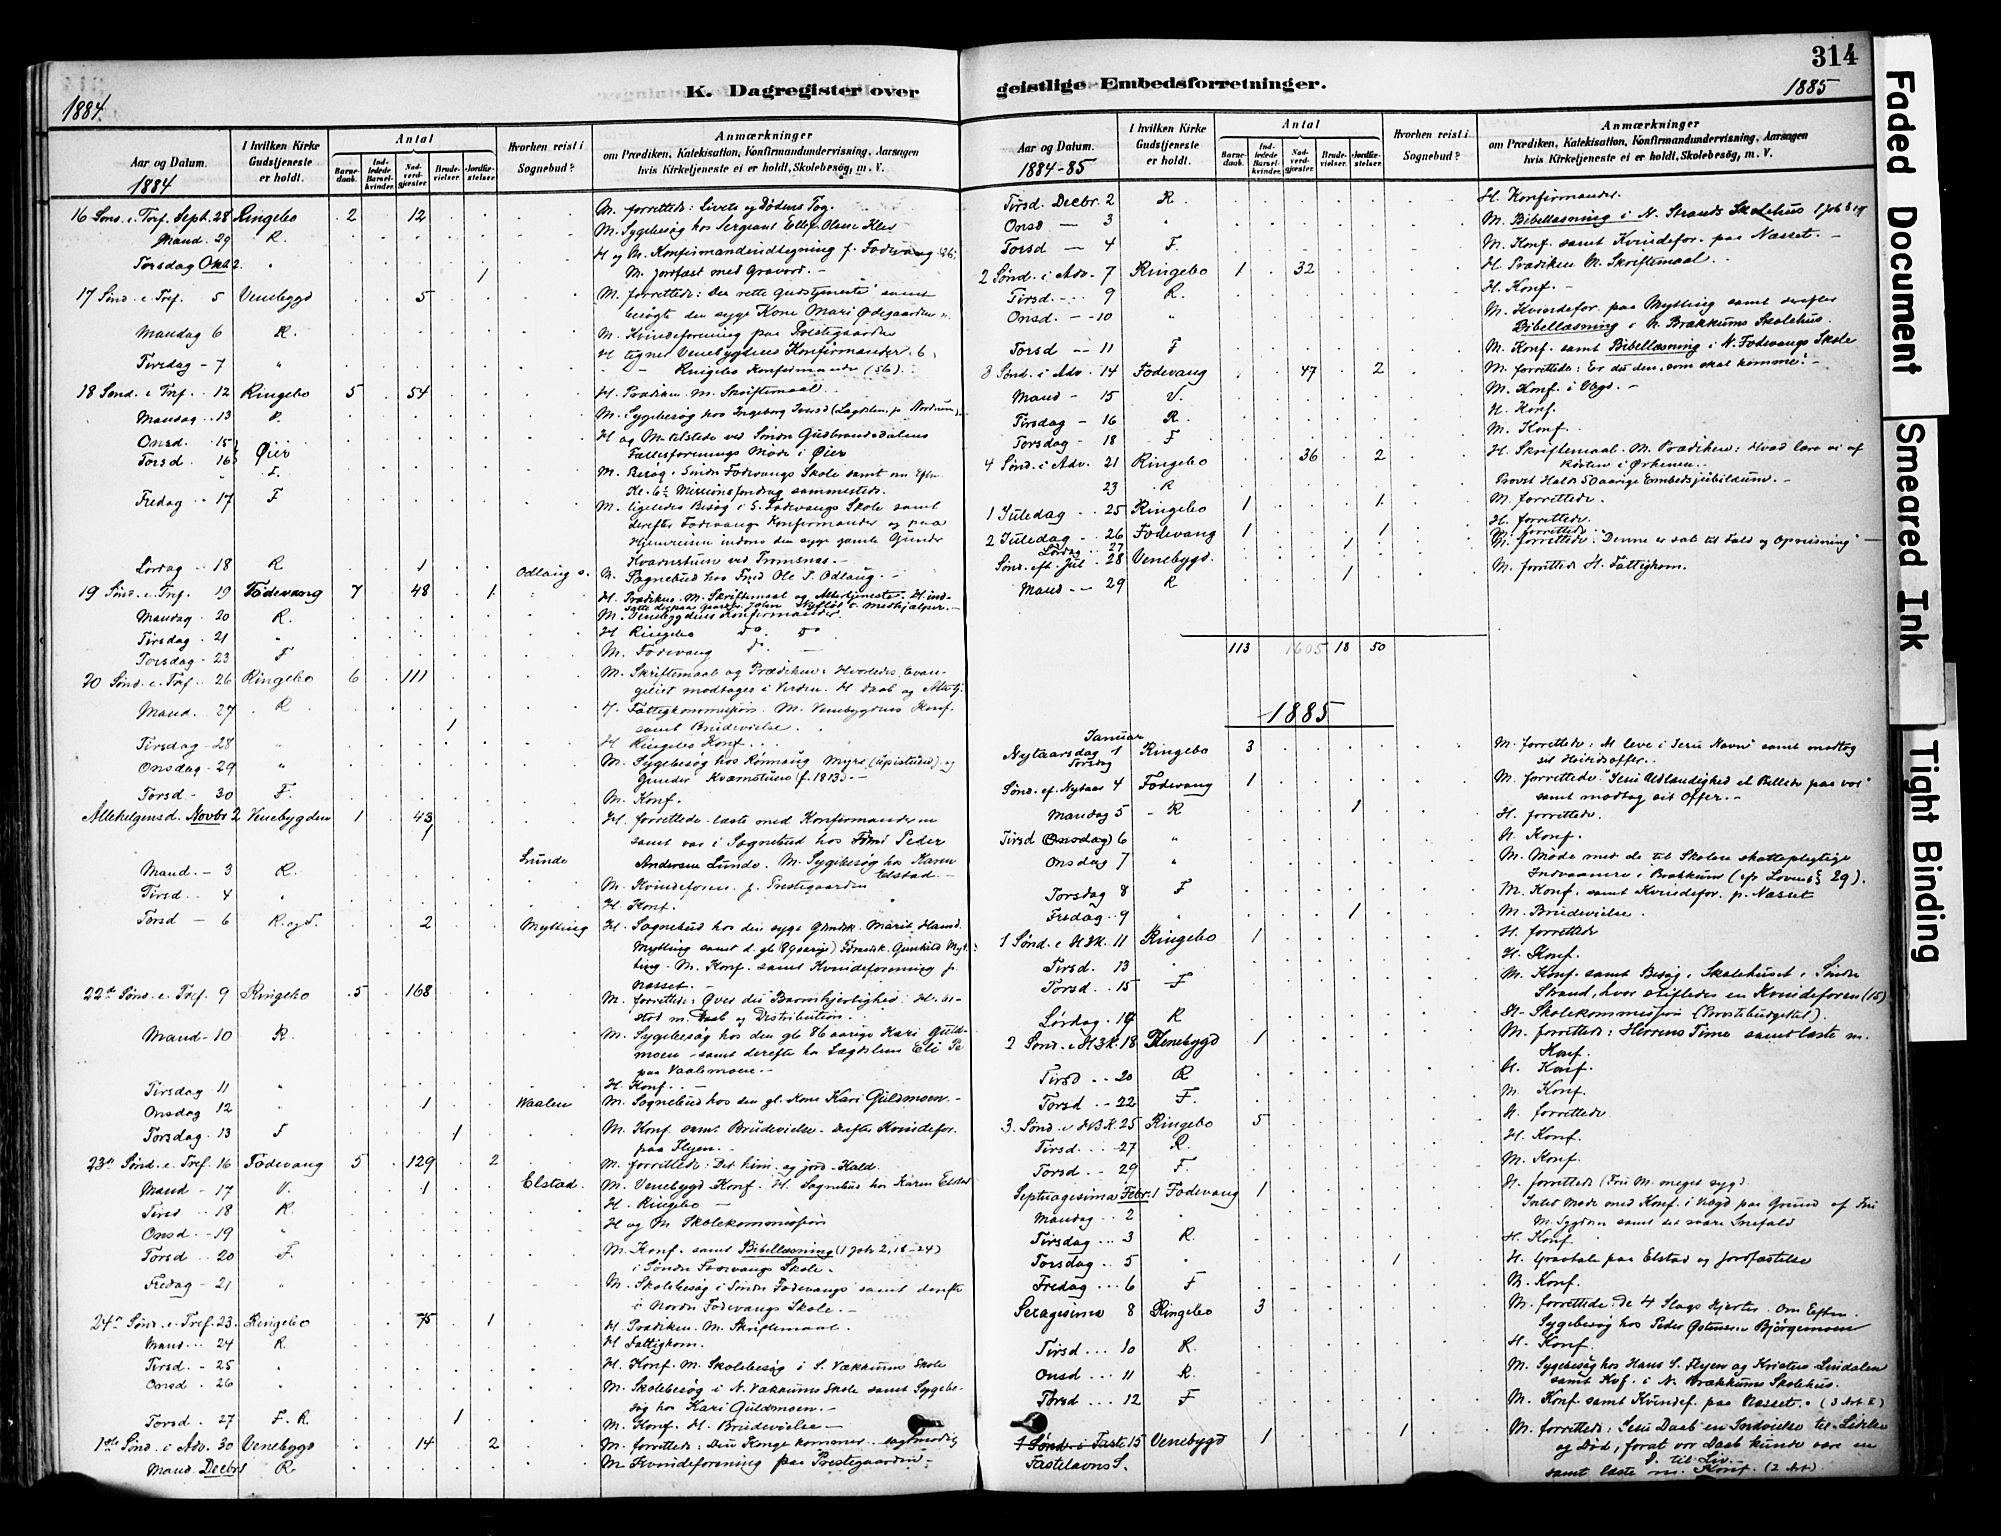 1884.
K. Dagregister over
Aar og Datum.
1884
I hvilken Kirke Gudstjeneste er holdt.
Antal
Barnedaab.
Indledede Barselkvinder.
Nadverdgjester.
Brudevielser.
Jordfæstelser.
Hvorhen reist i Sognebud?
Anmærkninger
om Prædiken, Katekisation, Konfirmandundervisning, Aarsagen
hvis Kirketjeneste ei er holdt, Skolebesøg, m. V.
16 Sønd. e. Tref. Sept. 28 Ringebo 2 12 M. forrettede: Livets og Dødens Tog.
Mand. 29 R. M. Sygebesøg hos Sergeant Ellef Olsen Klev
Torsdag Okt. 2 " H og M. Konfirmandindtegning f. Fodevang (26)
1 M. jordfæst med Gravord. –
17 Sønd. e. Tref. 5 Venebygd 5 M. forrettede: Den rette Gudstjeneste samt
besøgt den syge Kone Mari Ødegaarden
Mandag 6 R. M. Kvindeforening paa Præstegaarden
Tirsdag - 7 " H tegner Venebygdens Konfirmander (6)
- Ringebo Konfirmander (56).
18 Sønd. e. Tref. 12 Ringebo 5 54 H. Prædiken. M. Skriftemaal.
Mandag 13 V. M. Sygebesøg hos Ingeborg
Onsd. 15 H og M. tilstede ved Søndr Gudbrandsdalens
Torsd 16 Øier Fællesforenings Møde i Øier
F. M. Besøg i Søndr Fodevangs Skole samt om Eftm.
Kl. 6½ Missionsforedrag sammesteds.
Fredag 17 F M. ligeledes Besøg i S. Fodevangs Skole samt
derefter Fodevangs Konfirmander og paa
Hjemreisen indom den syge gamle Gunder
Kvarnstuen ved Tromsnæs. –
Lørdag 18 R 1 Odlaug s. M. Sognebud hos Fred Ole P. Odlaug. –
19 Sønd. e. Tref. 19 Fodevang 7 48 1 H. Prædiken. M. Skriftemaal og Altertjeneste. H. ind-
Mandag 20 R. M. Venebygdens Konfirmander.
Tirsdag 21 " H Ringebo do.
Torsdag 23 F M. Fodevang
20 Sønd. e. Tref. 26 Ringebo 6 111 M. Skriftemaal og Prædiken: Hvorledes Evan-
geliet modtages i Verden. H. Daab og Altertj.
Mand. 27 R H. Fattigkommission. M. Venebygdens Konf.
1 samt Brudevielse.
Tirsdag 28 " H Ringebo Konf.
Onsdag 29 " M. Sygebesøg hos Rønnaug Myrs og
Gunder Kvarnstuen (f. 1813). –
Torsd - 30 F. M. Konf.
Allehelgensd. Novbr 2 Venebygden 1 43 H. forrettede læste med Konfirmanderne
1 samt var i Sognebud hos Peder
Lunde Andersen Lunde. M. Sygebesøg hos Karen
Mand. - 3 R. Elstad –
Tirsd. - 4 " M. Kvindeforen. p. Prestegaarden
H. Konf.
Torsd - 6 R. og F. 2 Mytting H. Sognebud hos den syge
Mytting samt d. gl.
M. Konf. samt Kvindeforening p.
Næsset. –
22de Sønd. e. Tref. 9 Ringebo 5 168 M. forrettede: Over din Barmhjertighed. H. bi-
stod m. Daab og Distribution.
Mand - 10 R. M. Sygebesøg hos den gl. 86 aarige Kari Guld-
moen - samt derefter hos
paa Vaalemoen. –
Tirsdag 11 " H. Konf. –
Onsdag 12 " 1 Waalen M. Sognebud hos den gl. Kone Kari Guldmoen. –
Torsdag 13 F 1 M. Konf. samt Brudevielse. Derefter Kvindefor.
paa Flyen. –
23de Sønd. e. Tref. 16 Fodevang 5 129 2 M. forrettede: Det him. og jord. Kald.
Mand - 17 V. 1 Elstad. M. Venebygd Konf. H. Sognebud hos Karen Elstad
Tirsd 18 R. H. Ringebo –
Onsd - 19 " H og M. Skolekommission
Torsd - 20 F. M. Konf. samt Bibellæsning (1 Joh 2, 18-24)
i Søndr Fodevangs Skole. –
Fredag - 21 " M. Skolebesøg i Søndr Fodevangs samt derefter
i Nordr Fodevangs Skole. –
24de Sønd. e. Tref. 23 Ringebo 75 1 H. Prædiken. M. Skriftemaal.
Mand. 24 R. H Fattigkom.
Tirsd. - 25 " H. Konf. M. Skolebesøg i S. Vækkums Skole
Onsd - 26 " M. Skolebesøg i N. Vækkums Skole samt Sygebe-
søg hos Kari Guldmoen. –
Torsd. 27 F. R. 1 M. Konf. H. Brudevielse –
1ste Sønd. i Adv. 30 Venebygd 14 2 M. forrettede: Din Konge kommer sagtmodig
Mand. Decbr 1 R M. Kvindeforening paa Prestegaarden –
geistlige Embedsforretninger.
314
1885
Aar og Datum.
1884-85
I hvilken Kirke Gudstjeneste er holdt.
Antal
Barnedaab.
Indledede Barselkvinder.
Nadverdgjester.
Brudevielser.
Jordfæstelser.
Hvorhen reist i Sognebud?
Anmærkninger
om Prædiken, Katekisation, Konfirmandundervisning, Aarsagen
hvis Kirketjeneste ei er holdt, Skolebesøg, m. V.
Tirsd. Decbr. 2 R. H. Konfirmander.
Onsd — 3 " M. Bibellæsning i N. Strands Skolehus
Torsd — 4 F. M. Konf. samt Kvindefor. paa Næsset. –
2 Sønd. i Adv. 7 Ringebo 1 32 H. Prædiken M. Skriftemaal. –
Tirsd. - 9 R. H. Konf. –
Onsd. - 10 " M. Kvindefor. paa Mytting samt derefter
Bibellæsning i N. Brækkums Skolehus.
Torsd - 11 F M. Konf. samt Bibellæsning i N. Fodevangs Skole
3 Sønd. i Adv. 14 Fodevang 47 2 M. forrettede: Er du den, som skal komme? –
Mand - 15 V. M. Konf. i Vbgd. –
Tirsdag - 16 R. H. Konf.
Torsdag - 18 F M. Konf.
4 Sønd. i Adv. 21 Ringebo 36 2 H. Skriftemaal. M. Prædiken: Hvad lære vi af
Røsten i Ørkenen. –
23 R Provst Halds 50 aarige Embedsjubilæum. –
1 Juledag 25 Ringebo 1 1 M. forrettede.
2 Juledag - 26 Fodevang 1 1 H. forrettede.
Lørdag 27 1 M. forrettede
Sønd. eft. Jul. 28 Venebygd. M. forrettede: Denne er sat til Fald og Opreisning –
Mand - 29 R 1 M. forrettede H. Fattigkom.
113 1605 18 50
1885
Januar
Nytaarsdag 1 Ringebo 3 M. forrettede: At leve i Jesu Navn samt modtog
Torsdag sit Høitidsoffer. –
Sønd. ef. Nytaar 4 Fodevang 1 M. forrettede "Jesu Udlændighed et Billede paa vor"
samt modtog sit Offer. –
Mandag 5 - R 1 H. forrettede.
Tirsd (Onsdag) 6 " H. Konf.
Onsdag 7 " M. Møde med de til Skolen skattepligtige
Indvaanere i Brækkum (ef. Lovens § 29).
Torsdag 8 F M. Konf. samt Kvindefor. p. Næsset
Fredag 9 " 1 M. Brudevielse.
1 Sønd. e H3K. 11 Ringebo 1 H. forrettede
Tirsd. 13 " H. Konf.
Torsd. 15 F M. Konf. samt Besøg i Skolehuset i Søndr
Strand, hvor stiftedes en Kvindeforen (15)
Lørdag 17 R H- Skolekommission
2 Sønd. e. H3K. 18 Venebygd 1 M. forrettede: Herrens Time samt læste m.
Konf.
Tirsd - 20 R H. Konf.
Torsd - 22 F. M. Konf.
3. Sønd. e. H3K. 25 Ringebo 5 H. forrettede
Tirsd. - 27 R. H. Konf.
Torsd - 29 F. M. Konf.
Septuagesima Febr. 1 Fodevang 1 H. forrettede (Fru M. meget syg).
Mandag 2 " Intet Møde med Konf. i Vbgd paa Grund af Fru
M. Sygdom samt det svære Snefald
Tirsdag 3 R. H. Konf.
Torsdag 5 " 1 H. Gravtale paa Elstad og Jordfæstelse
Fredag 6 F M. Konf.
Sexagesima 8 Ringebo 3 M. forrettede: De 4 Slags Hjerter. Om Eftm.
Sygebesøg hos Peder Østensen Bjørgemoen
Tirsd ... 10 R. H. Konf.
Onsd ... 11 R. M. Sygebesøg hos Hans S. Flyen og Kristen Lindalen
samt Kvf. i N. Brækkums Skolehus.
Torsd ... 12 F M. Konf. samt Kvindef. paa Næsset. (3 Art. E)
1 Sønd. i Faste 15 Venebygd 1 1 M. forrettede: Jesu Daab en Indvielse til Lidelse
Fastelavns S. og Død, forat vor Daab kunde være en
I. til Liv.
samt læste m. Konf. (2 Art)
Faded Document
Smeared Ink
Tight Binding